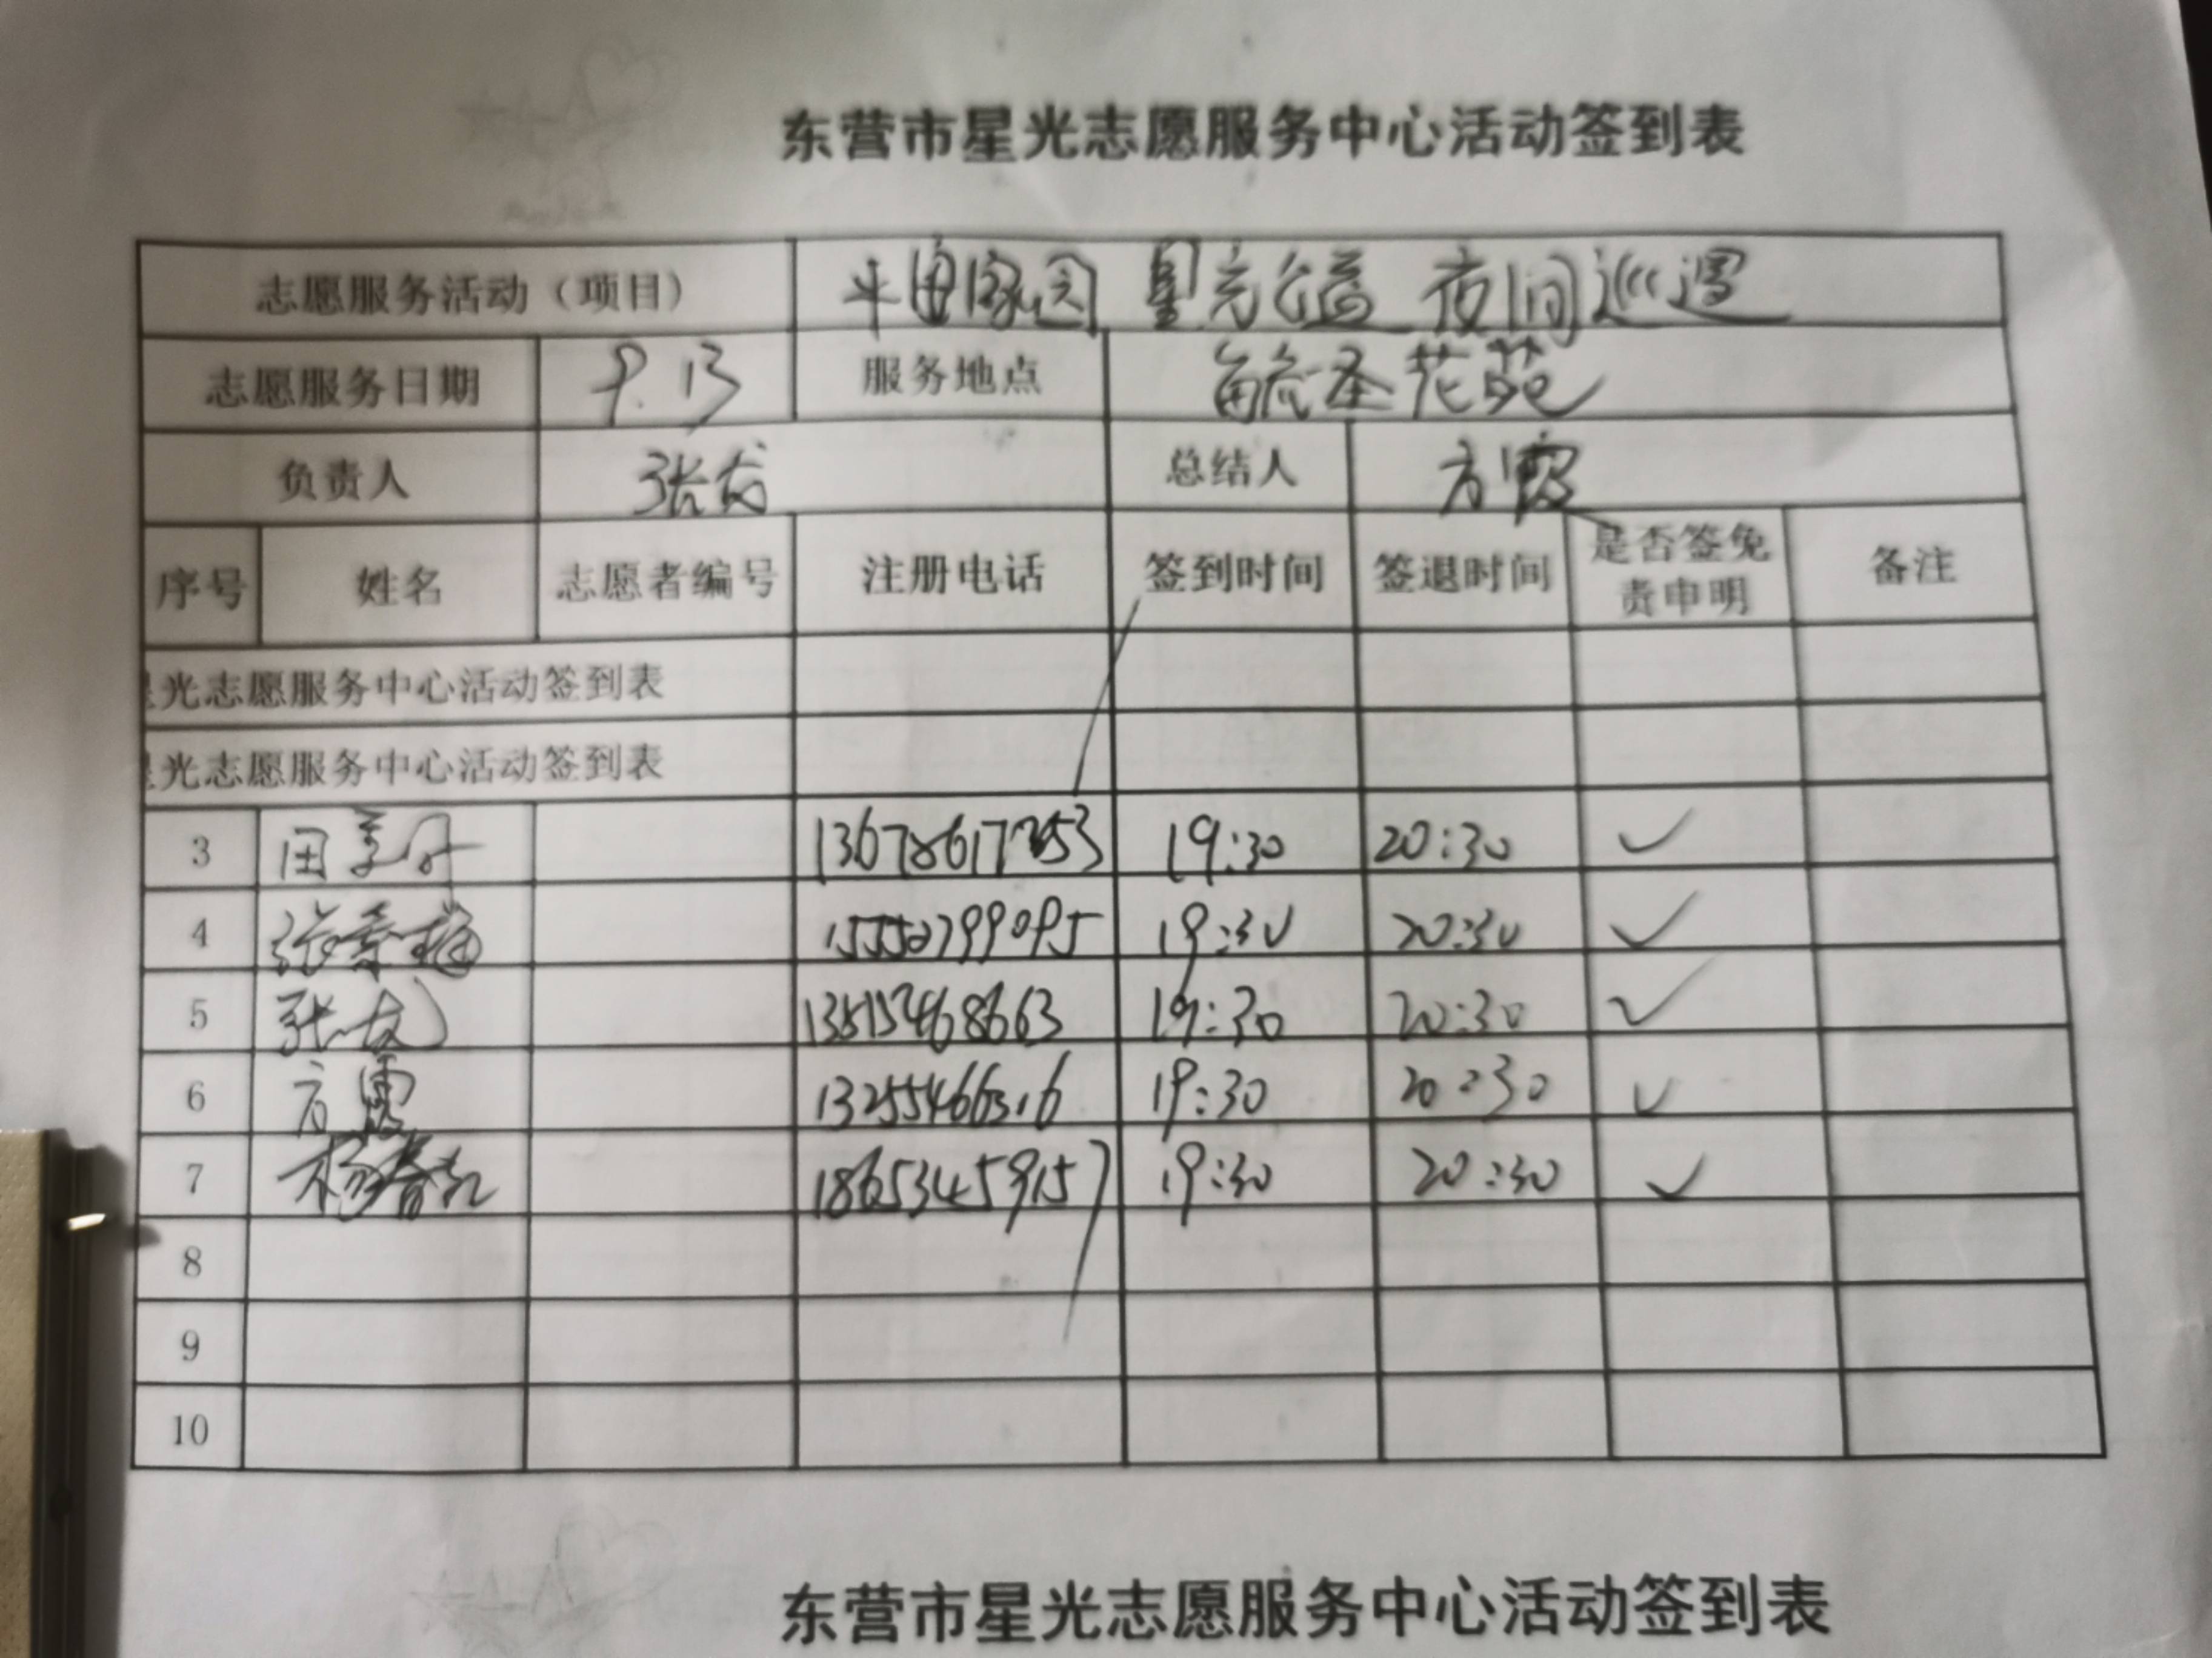 东营市星光志愿服务中心活动签到表
志愿服务活动（项目） 星光公益 夜间巡逻
志愿服务日期 9.13 服务地点 花苑
负责人 张友 总结人 方霞
序号 姓名 志愿者编号 注册电话 签到时间 签退时间 是否签免责申明 备注
光志愿服务中心活动签到表
光志愿服务中心活动签到表
3 田 19:30 20:30 ✓
4 张 15550799095 19:30 20:30 ✓
5 张友 19:30 20:30 ✓
6 方霞 19:30 20:30 ✓
7 杨春 18653459157 19:30 20:30 ✓
8
9
10
东营市星光志愿服务中心活动签到表